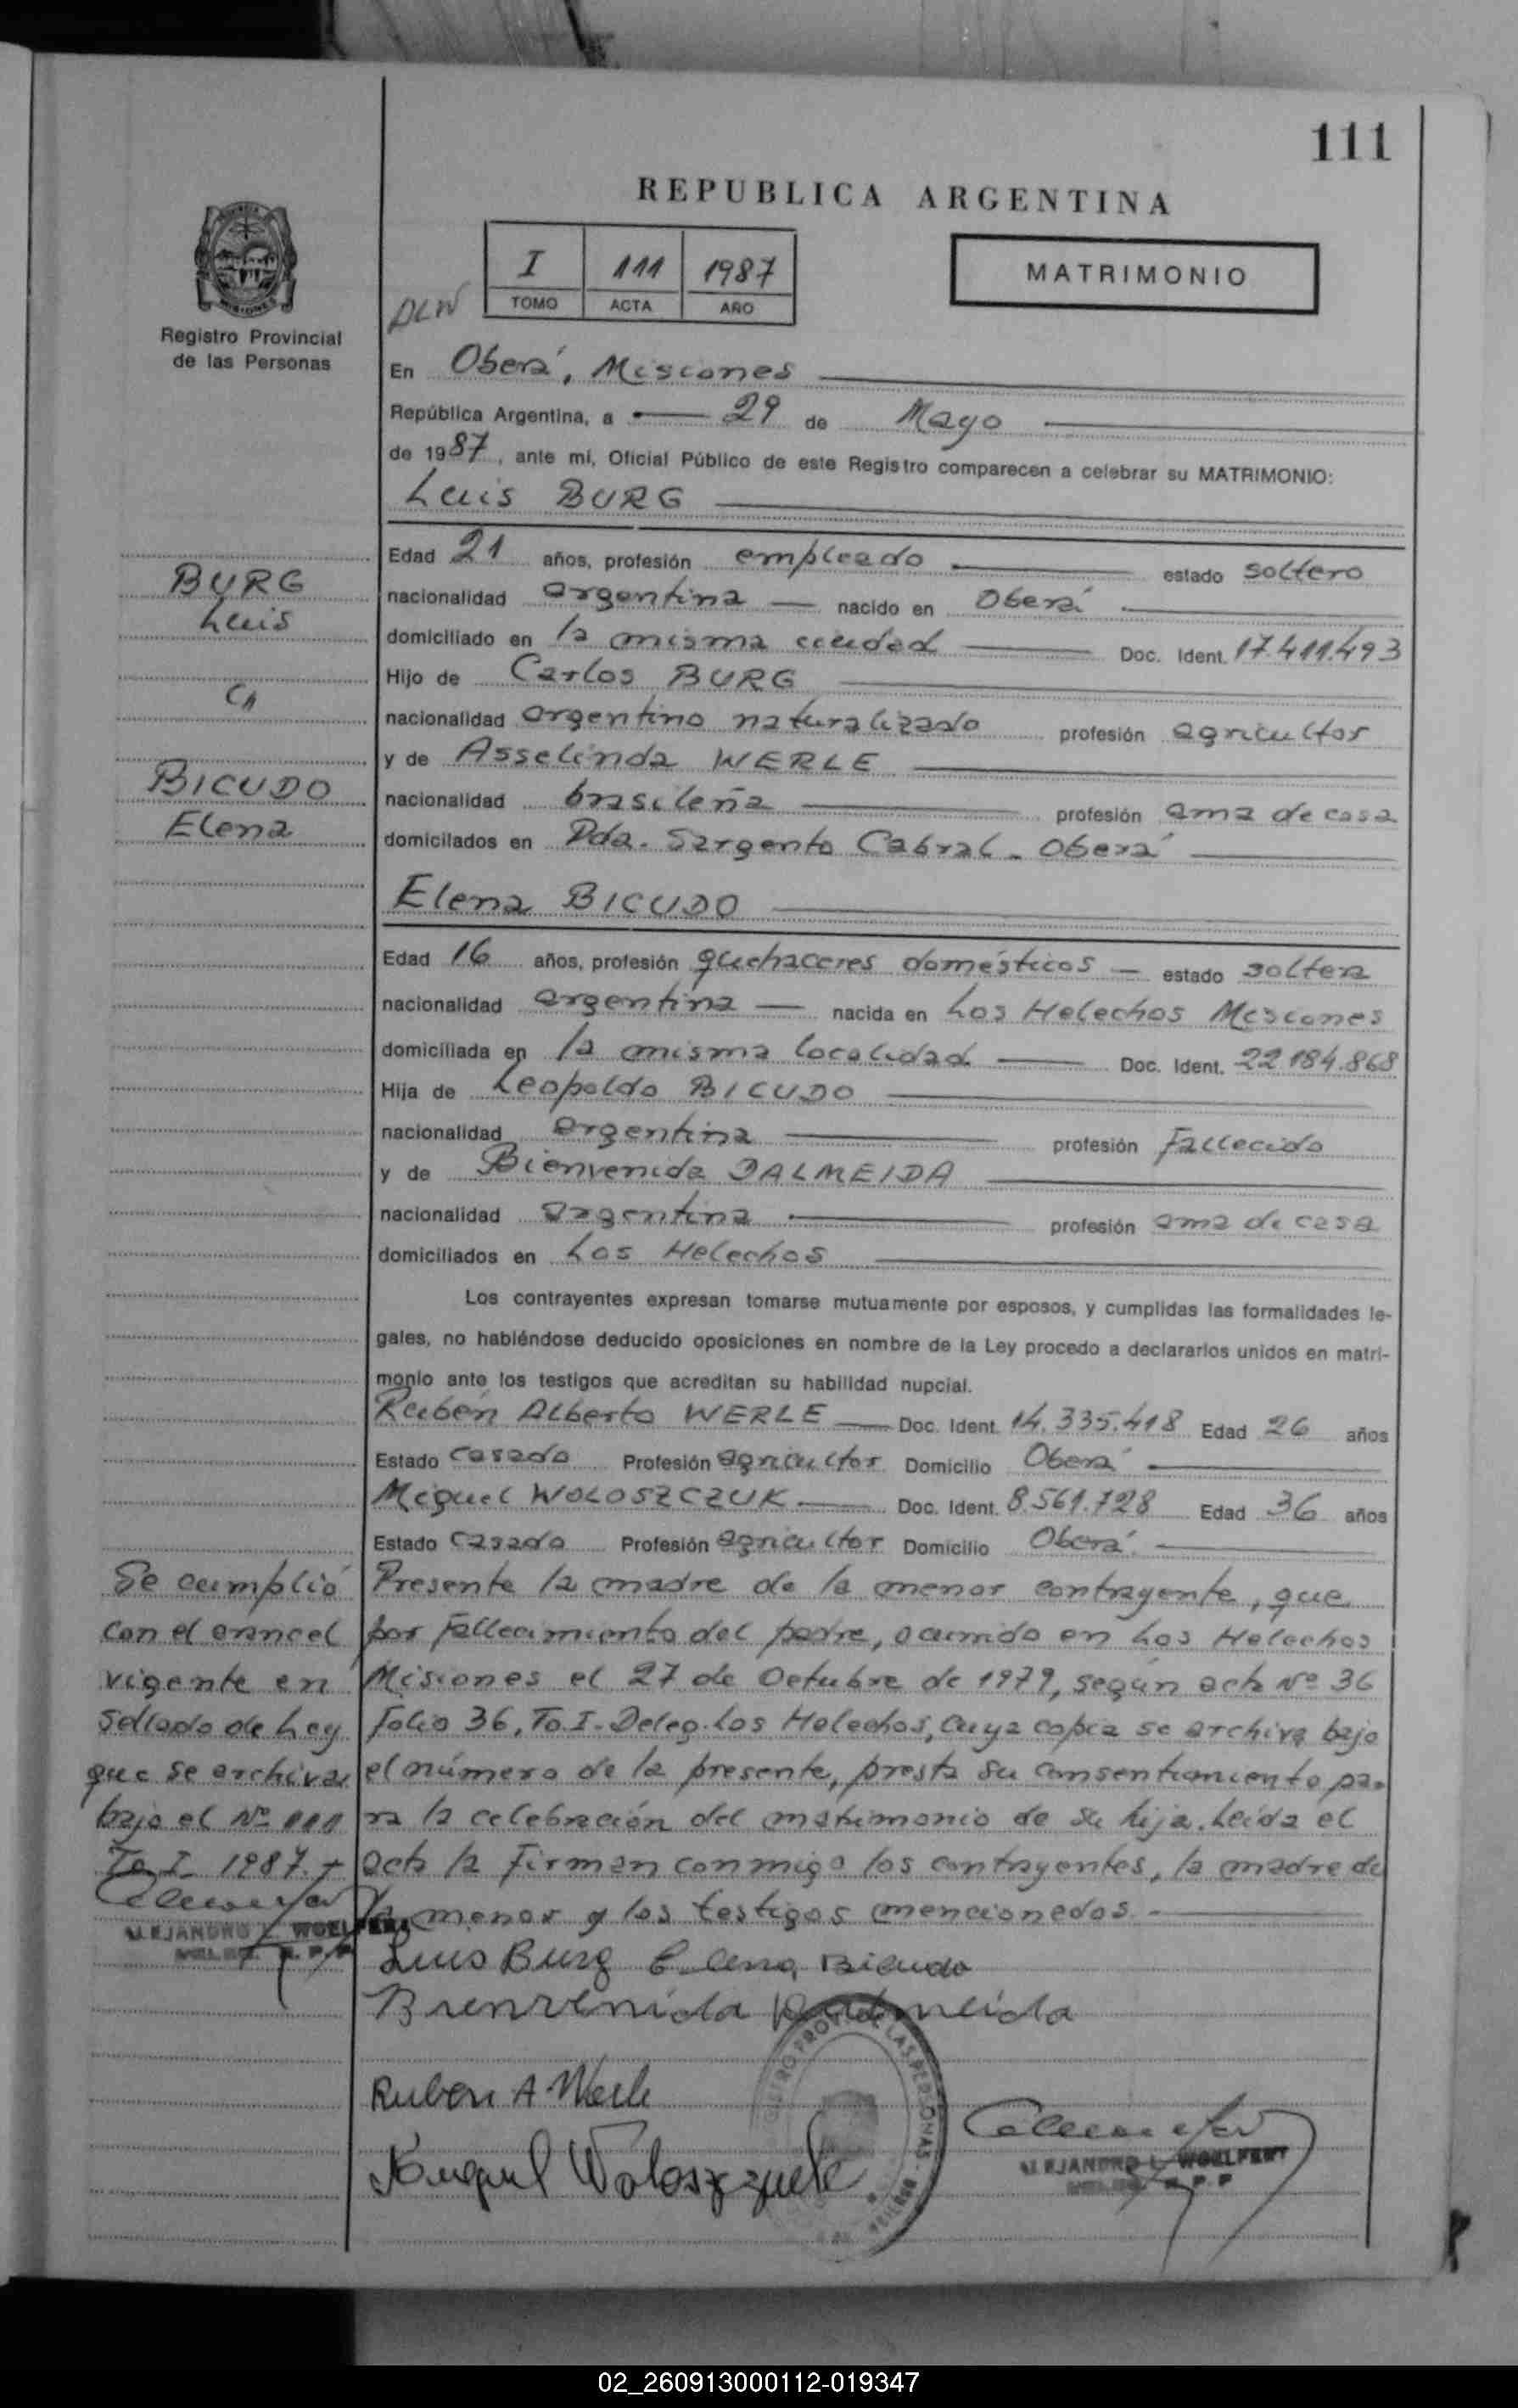 111
REPUBLICA ARGENTINA
I 111 1987
TOMO ACTA AÑO
MATRIMONIO
DLW
Registro Provincial
de las Personas
En Oberá, Misiones
República Argentina, a 29 de Mayo
de 1987, ante mí, Oficial Público de este Registro comparecen a celebrar su MATRIMONIO:
Luis BURG
Edad 21 años, profesión empleado estado soltero
BURG
nacionalidad argentina nacido en Oberá
Luis
domiciliado en la misma ciudad Doc. Ident. 17.411.493
Hijo de Carlos BURG
c/
nacionalidad argentino naturalizado profesión agricultor
y de Asselinda WERLE
BICUDO
nacionalidad brasileña profesión ama de casa
Elena
domicilados en Pda. Sargento Cabral - Oberá
Elena BICUDO
Edad 16 años, profesión quehaceres domésticos - estado soltera
nacionalidad argentina nacida en Los Helechos Misiones
domiciliada en la misma localidad Doc. Ident. 22.184.868
Hija de Leopoldo BICUDO
nacionalidad argentina profesión Fallecido
y de Bienvenida DALMEIDA
nacionalidad argentina profesión ama de casa
domiciliados en Los Helechos
Los contrayentes expresan tomarse mutuamente por esposos, y cumplidas las formalidades le-
gales, no habiéndose deducido oposiciones en nombre de la Ley procedo a declararlos unidos en matri-
monio ante los testigos que acreditan su habilidad nupcial.
Rubén Alberto WERLE Doc. Ident. 14.335.418 Edad 26 años
Estado casado Profesión agricultor Domicilio Oberá
Miguel WOLOSZCZUK Doc. Ident. 8.561.728 Edad 36 años
Estado casado Profesión agricultor Domicilio Oberá
Presente la madre de la menor contrayente, que
por fallecimiento del padre, ocurrido en Los Helechos
Misiones el 27 de Octubre de 1979, según acta Nº 36
Folio 36, To. I - Deleg. Los Helechos, cuya copia se archiva bajo
el número de la presente, presta su consentimiento pa-
ra la celebración del matrimonio de su hija. Leída el
acta la firman conmigo los contrayentes, la madre de
la menor y los testigos mencionados.-
Se cumplió
con el arancel
vigente en
sellado de Ley
que se archiva
bajo el Nº 111
To I - 1987.-
ALEJANDRO L. WOELFERT
Luis Burg Elena Bicudo
Bienvenida Dalmeida
Ruben A. Werle
Miguel Woloszczuk
REGISTRO PROV. DE LAS PERSONAS
ALEJANDRO L. WOELFERT
02_260913000112-019347